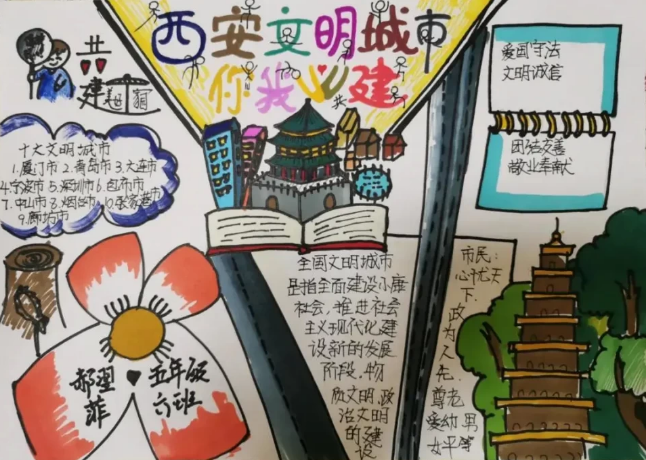 西安文明城市
你我共建
共
建美
十大文明城市
1.厦门市 2.青岛市 3.大连市
4.宁波市 5.深圳市 6.包市
7.中山市 8.烟台市 10.张家港市
9.廊坊市
爱国守法
文明诚信
团结友善
敬业奉献
全国文明城市
是指全面建设小康
社会,推进社会
主义现代化建
设新的发展
阶段,物
质文明,政
治文明
的建
设
市民:
心忧天
下,政
为人
先,
尊老
爱幼 男
女平等
郝
菲
五年级
六班